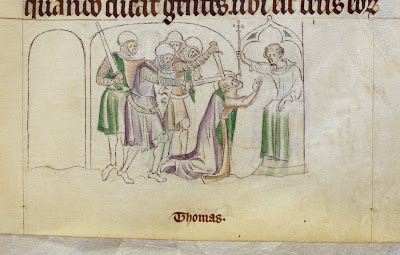 quando dicat gentes. ubi est deus eoꝝ
Thomas.